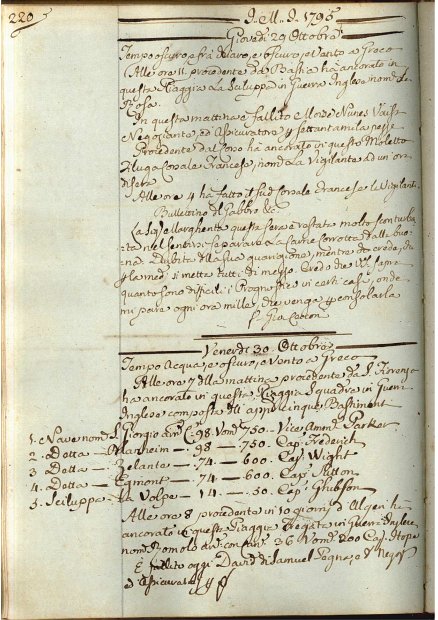 220
J. M. J. 1795
Giovedi 29 Ottobre
Tempo oscuro, e frà chiaro, e oscuro, e Vento a Greco
Alle ore 11. procedente da Bastia hà ancorato in
questa Piaggia La Sciluppa in Guerra Inglese nom.ta La
Rosa.
In questa mattina è fallito Moisè Nunes Vais
Negoziante, ed Assicuratore p settantamila pezze
Procedente da hà ancorato in questo Moletto
Corsale Francese, nom.ta La Vigilante ad un'ora
di sera
Alle ore 4 hà fatto il sud. Corsale Francese Le Vigilant.
Bullettino del Gabbro &c.
La Sig.ra Margherita questa sera è restata molto sconturba-
ta nel sentire separare La Carne Corrotta dalla buo-
na. Dubita della sua guarigione, mentre da creda, che
p La med. si mette tutti di mezzo. Credo che VS. sapra
quanto sono dificili i Prognostici in certi casi, onde
mi pare ogni ora mille, che venga p consolarla
Venerdi 30. Ottobre
Tempo Acqua, e oscuro, e Vento a Greco
Alle ore 7 della mattina procedente da S. Fiorenzo
ha ancorato in questa Piaggia Squadra in Guerra
Inglese composta di appiè cinque Bastimenti
1. Nave nom. S. Giorgio di Can. C. 98. Vom. 750. Vice Amm. Parker
2. Detta — Barsheim — . 98 — 750. Cap. Frederich
3. Detta — Zelante — . 74 — 600. Cap. Wight
4. Detta — Egmont — . 74 — 600. Cap. Sutton
5. Sciluppa — La Volpe — . 14 — . 50. Cap. Ghibson
Alle ore 8 procedente in 10 giorni d'Algeri hà
ancorato in questa Piaggia Fregata in Guerra Inglese
nom. Romolo di Can. 36 Vom. 200 Cap. Hope
È fallito oggi David di Samuel Pegna, e Negoz.
ed Assicurat.